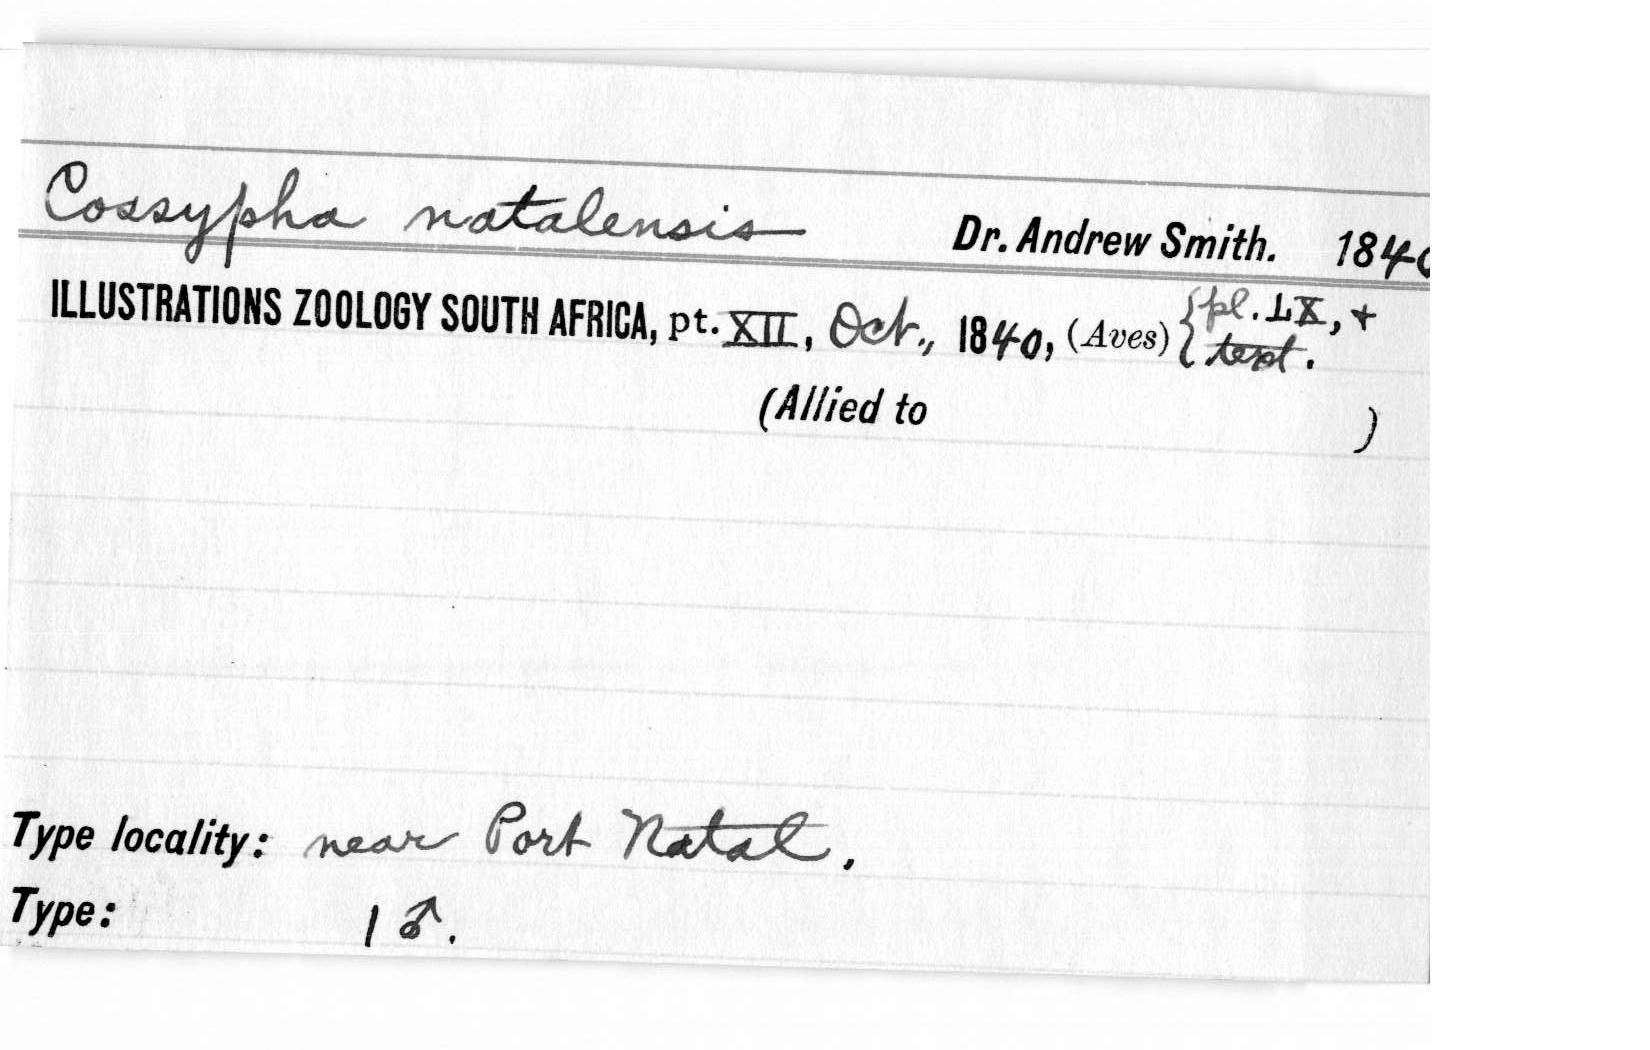 Cossypha natalensis Dr. Andrew Smith. 1840
ILLUSTRATIONS ZOOLOGY SOUTH AFRICA, pt. XII, Oct., 1840, (Aves) { pl. LX, +
text.
(Allied to )
Type locality: near Port Natal.
Type: 1 ♂.